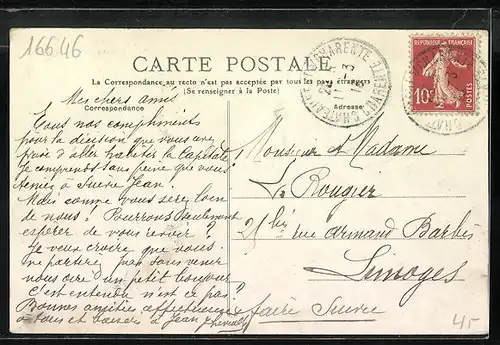 16646
CARTE POSTALE
La Correspondance au recto n'est pas acceptée par tous les pays étrangers
(Se renseigner à la Poste)
Correspondance
Adresse
REPUBLIQUE FRANÇAISE
10c
POSTES
Mes chers amis
Tous nos compliments
pour la décision que vous avez
prise d'aller habiter la Capitale
Je comprends sans peine que vous
teniez à suivre Jean.
Mais comme vous serez loin
de nous! Pourrons-seulement
espérer de vous revoir?
Je veux croire que vous
ne partirez pas sans venir
nous dire un petit bonjour
C'est entendu n'est ce pas?
Bonnes amitiés affectueuses
à tous et baisers à Jean
Monsieur et Madame
L. Rougier
21 bis rue Armand Barbès
Limoges
faire suivre
4,-